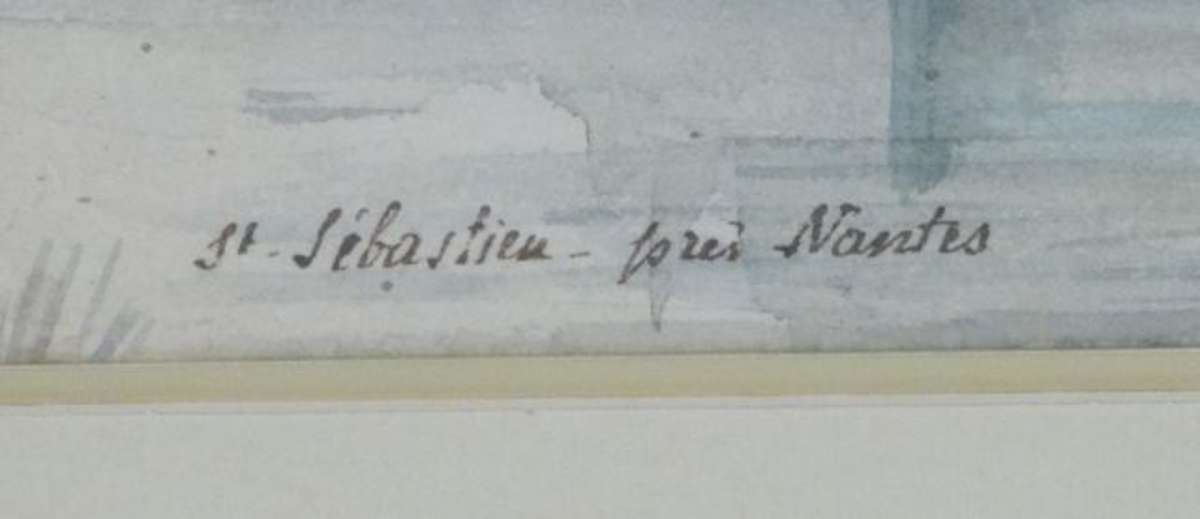 St-Sébastien - près Nantes